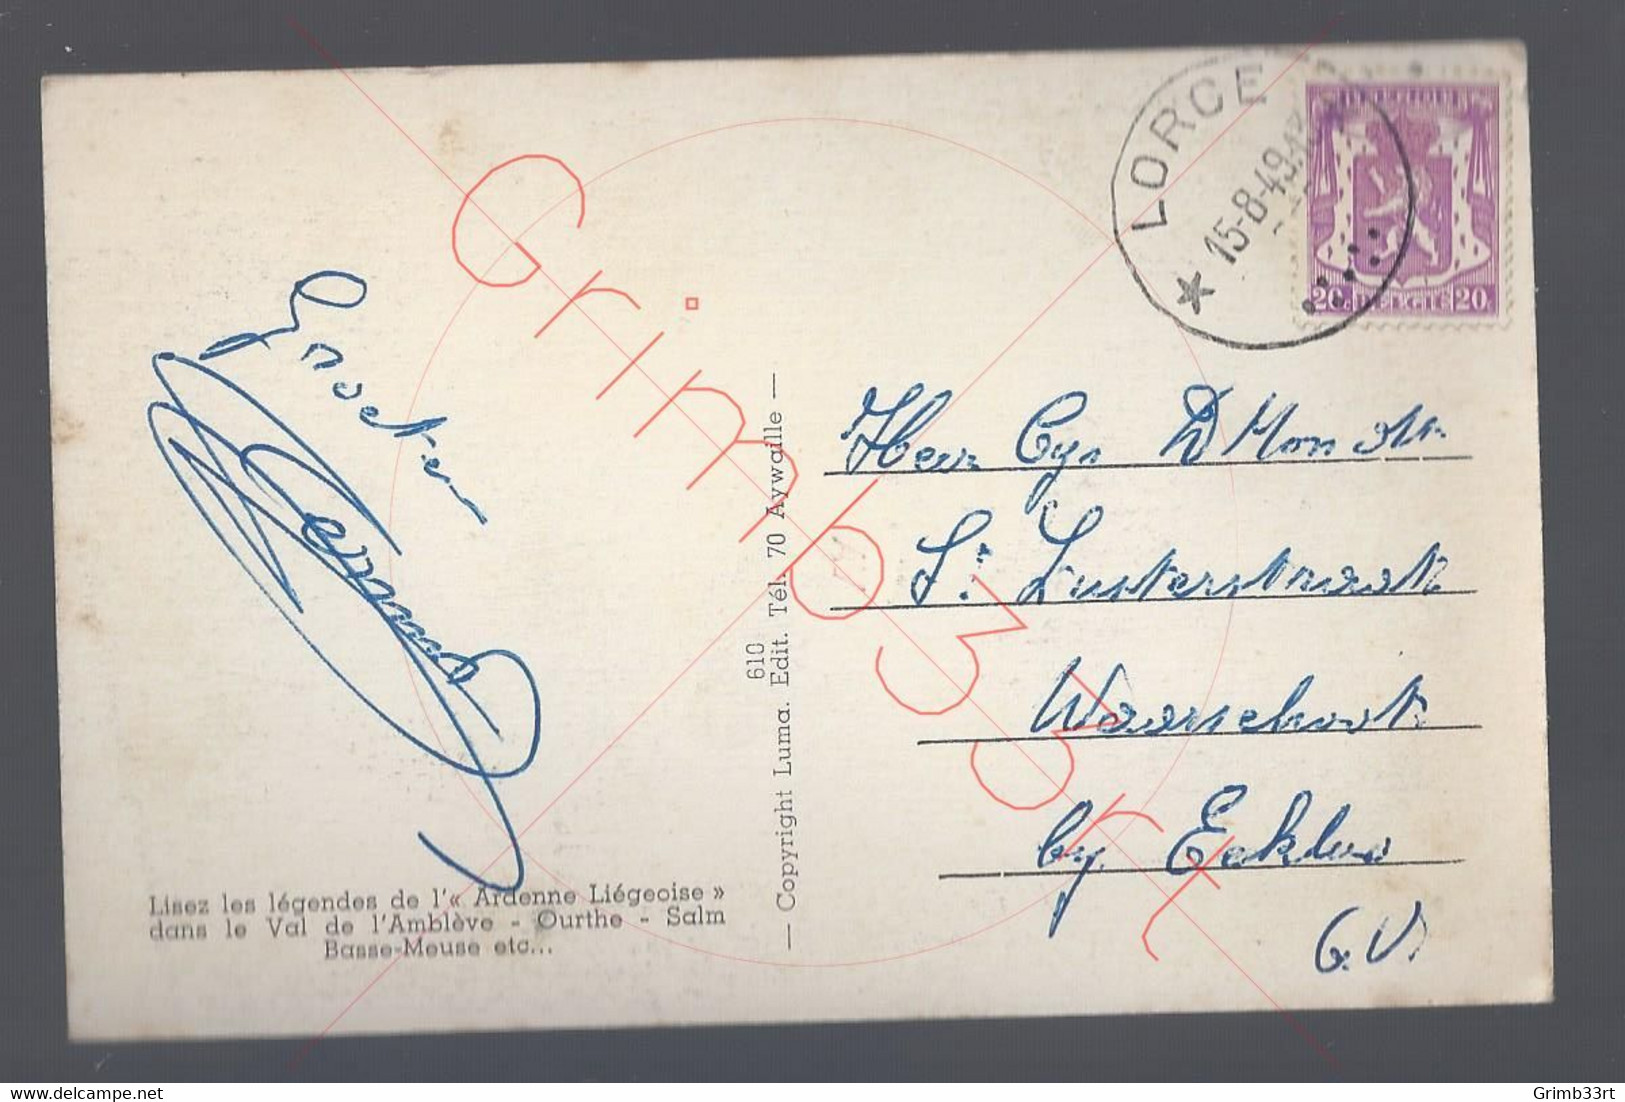 LORCE
15-8-49
BELGIQUE
20c BELGIË 20c
Groeten
Heer Cys D'Hondt
St Lusterstraat
Waarschoot
by Eekloo
O.V.
610
— Copyright Luma. Edit. Tél. 70 Aywaille —
Lisez les légendes de l'« Ardenne Liégeoise »
dans le Val de l'Amblève - Ourthe - Salm
Basse-Meuse etc...
Grimb33rt
Grimb33rt
delcampe.net